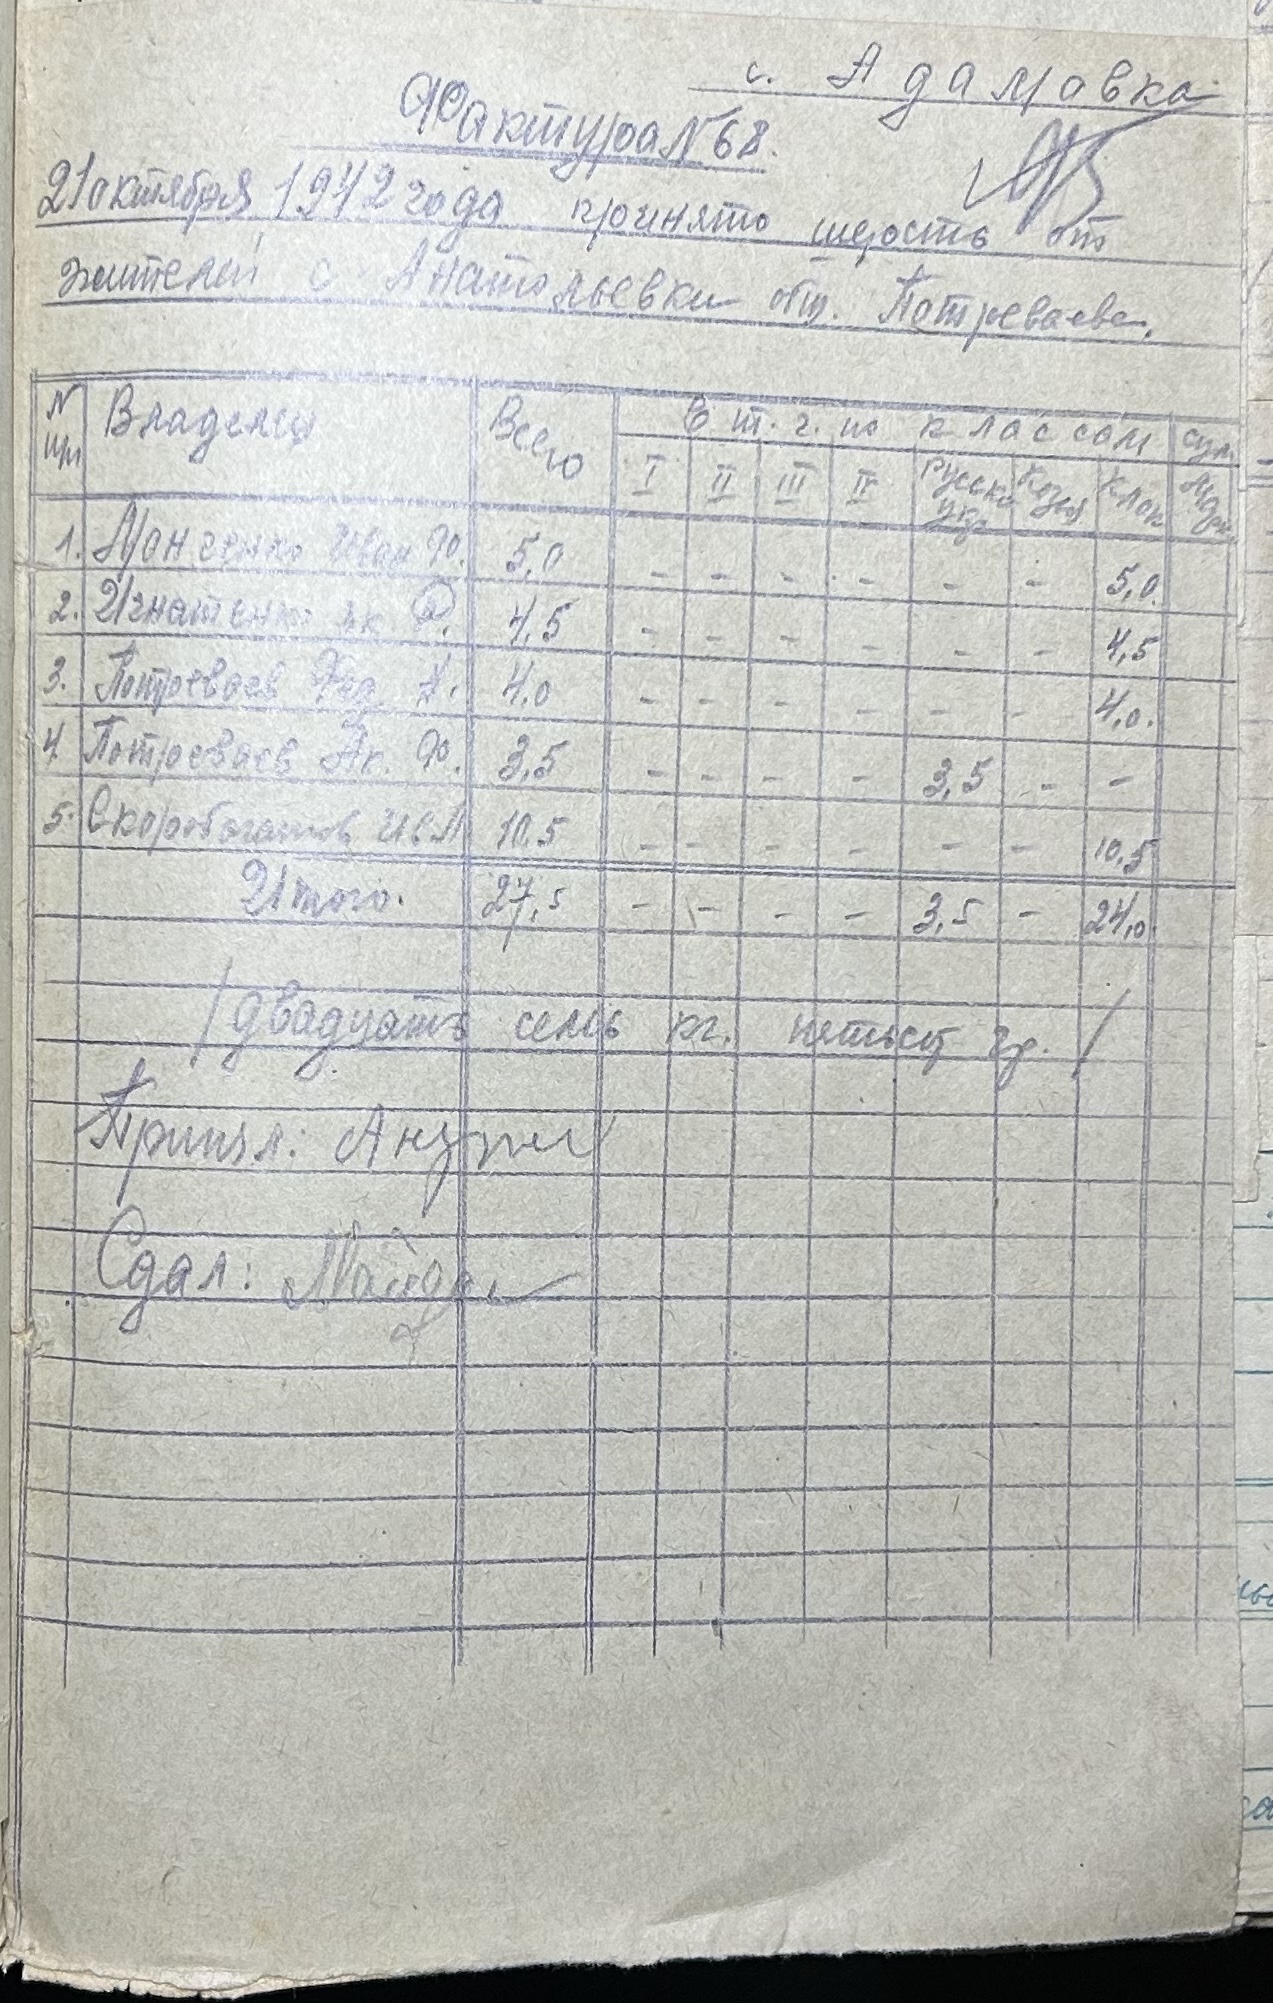 с. Адамовка
Фактура № 68.
21 октября 1942 года принято шерсть от
жителей с. Анатольевки от. Потреваева.
N п/п Владелец Всего В т. ч. по классам сум.
I II III IV Русско укр Козья Клок
1. Иван Ф. 5,0 - - - - - - 5,0.
2. Игнатенко Як. Ф. 4,5 - - - - - 4,5
3. Потреваев Фед. А. 4,0 - - - - - - 4,0.
4 Потреваев Ак. Ф. 3,5 - - - - 3,5 - -
5. Скоробогатов Ив А 10.5 - - - - - - 10,5
Итого. 27,5 - - - - 3,5 - 24,0.
/двадцать семь кг. петьсот гр. /
Принял:
Сдал: